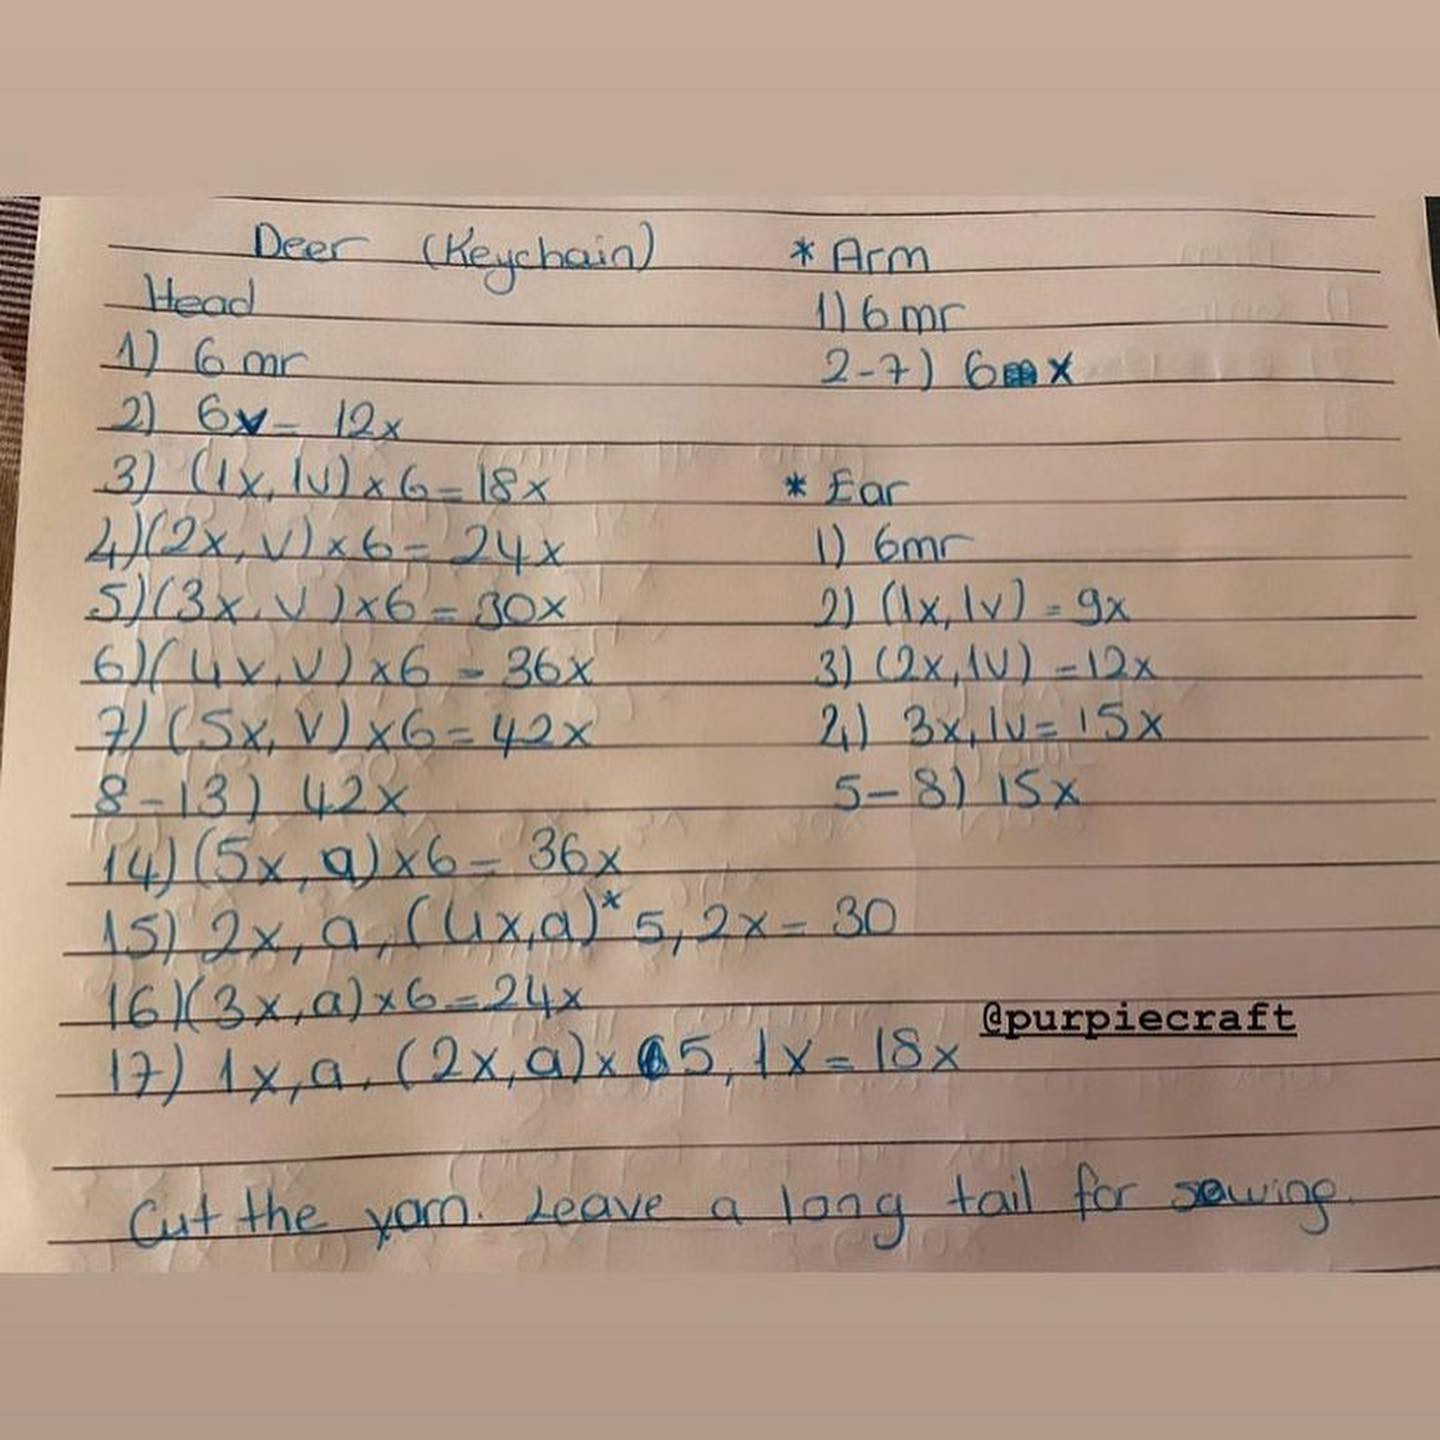 Deer (Keychain)
Head
1) 6 mr
2) 6v = 12x
3) (1x, 1v) x 6 = 18x
4) (2x, v) x 6 = 24x
5) (3x, v) x 6 = 30x
6) (4x, v) x 6 = 36x
7) (5x, v) x 6 = 42x
8-13) 42x
14) (5x, a) x 6 = 36x
15) 2x, a, (4x, a)* 5, 2x = 30
16) (3x, a) x 6 = 24x
17) 1x, a, (2x, a) x 5, 1x = 18x
Cut the yarn. Leave a long tail for sewing.
* Arm
1) 6 mr
2-7) 6x
* Ear
1) 6mr
2) (1x, 1v) = 9x
3) (2x, 1v) = 12x
4) 3x, 1v = 15x
5-8) 15x
@purpiecraft